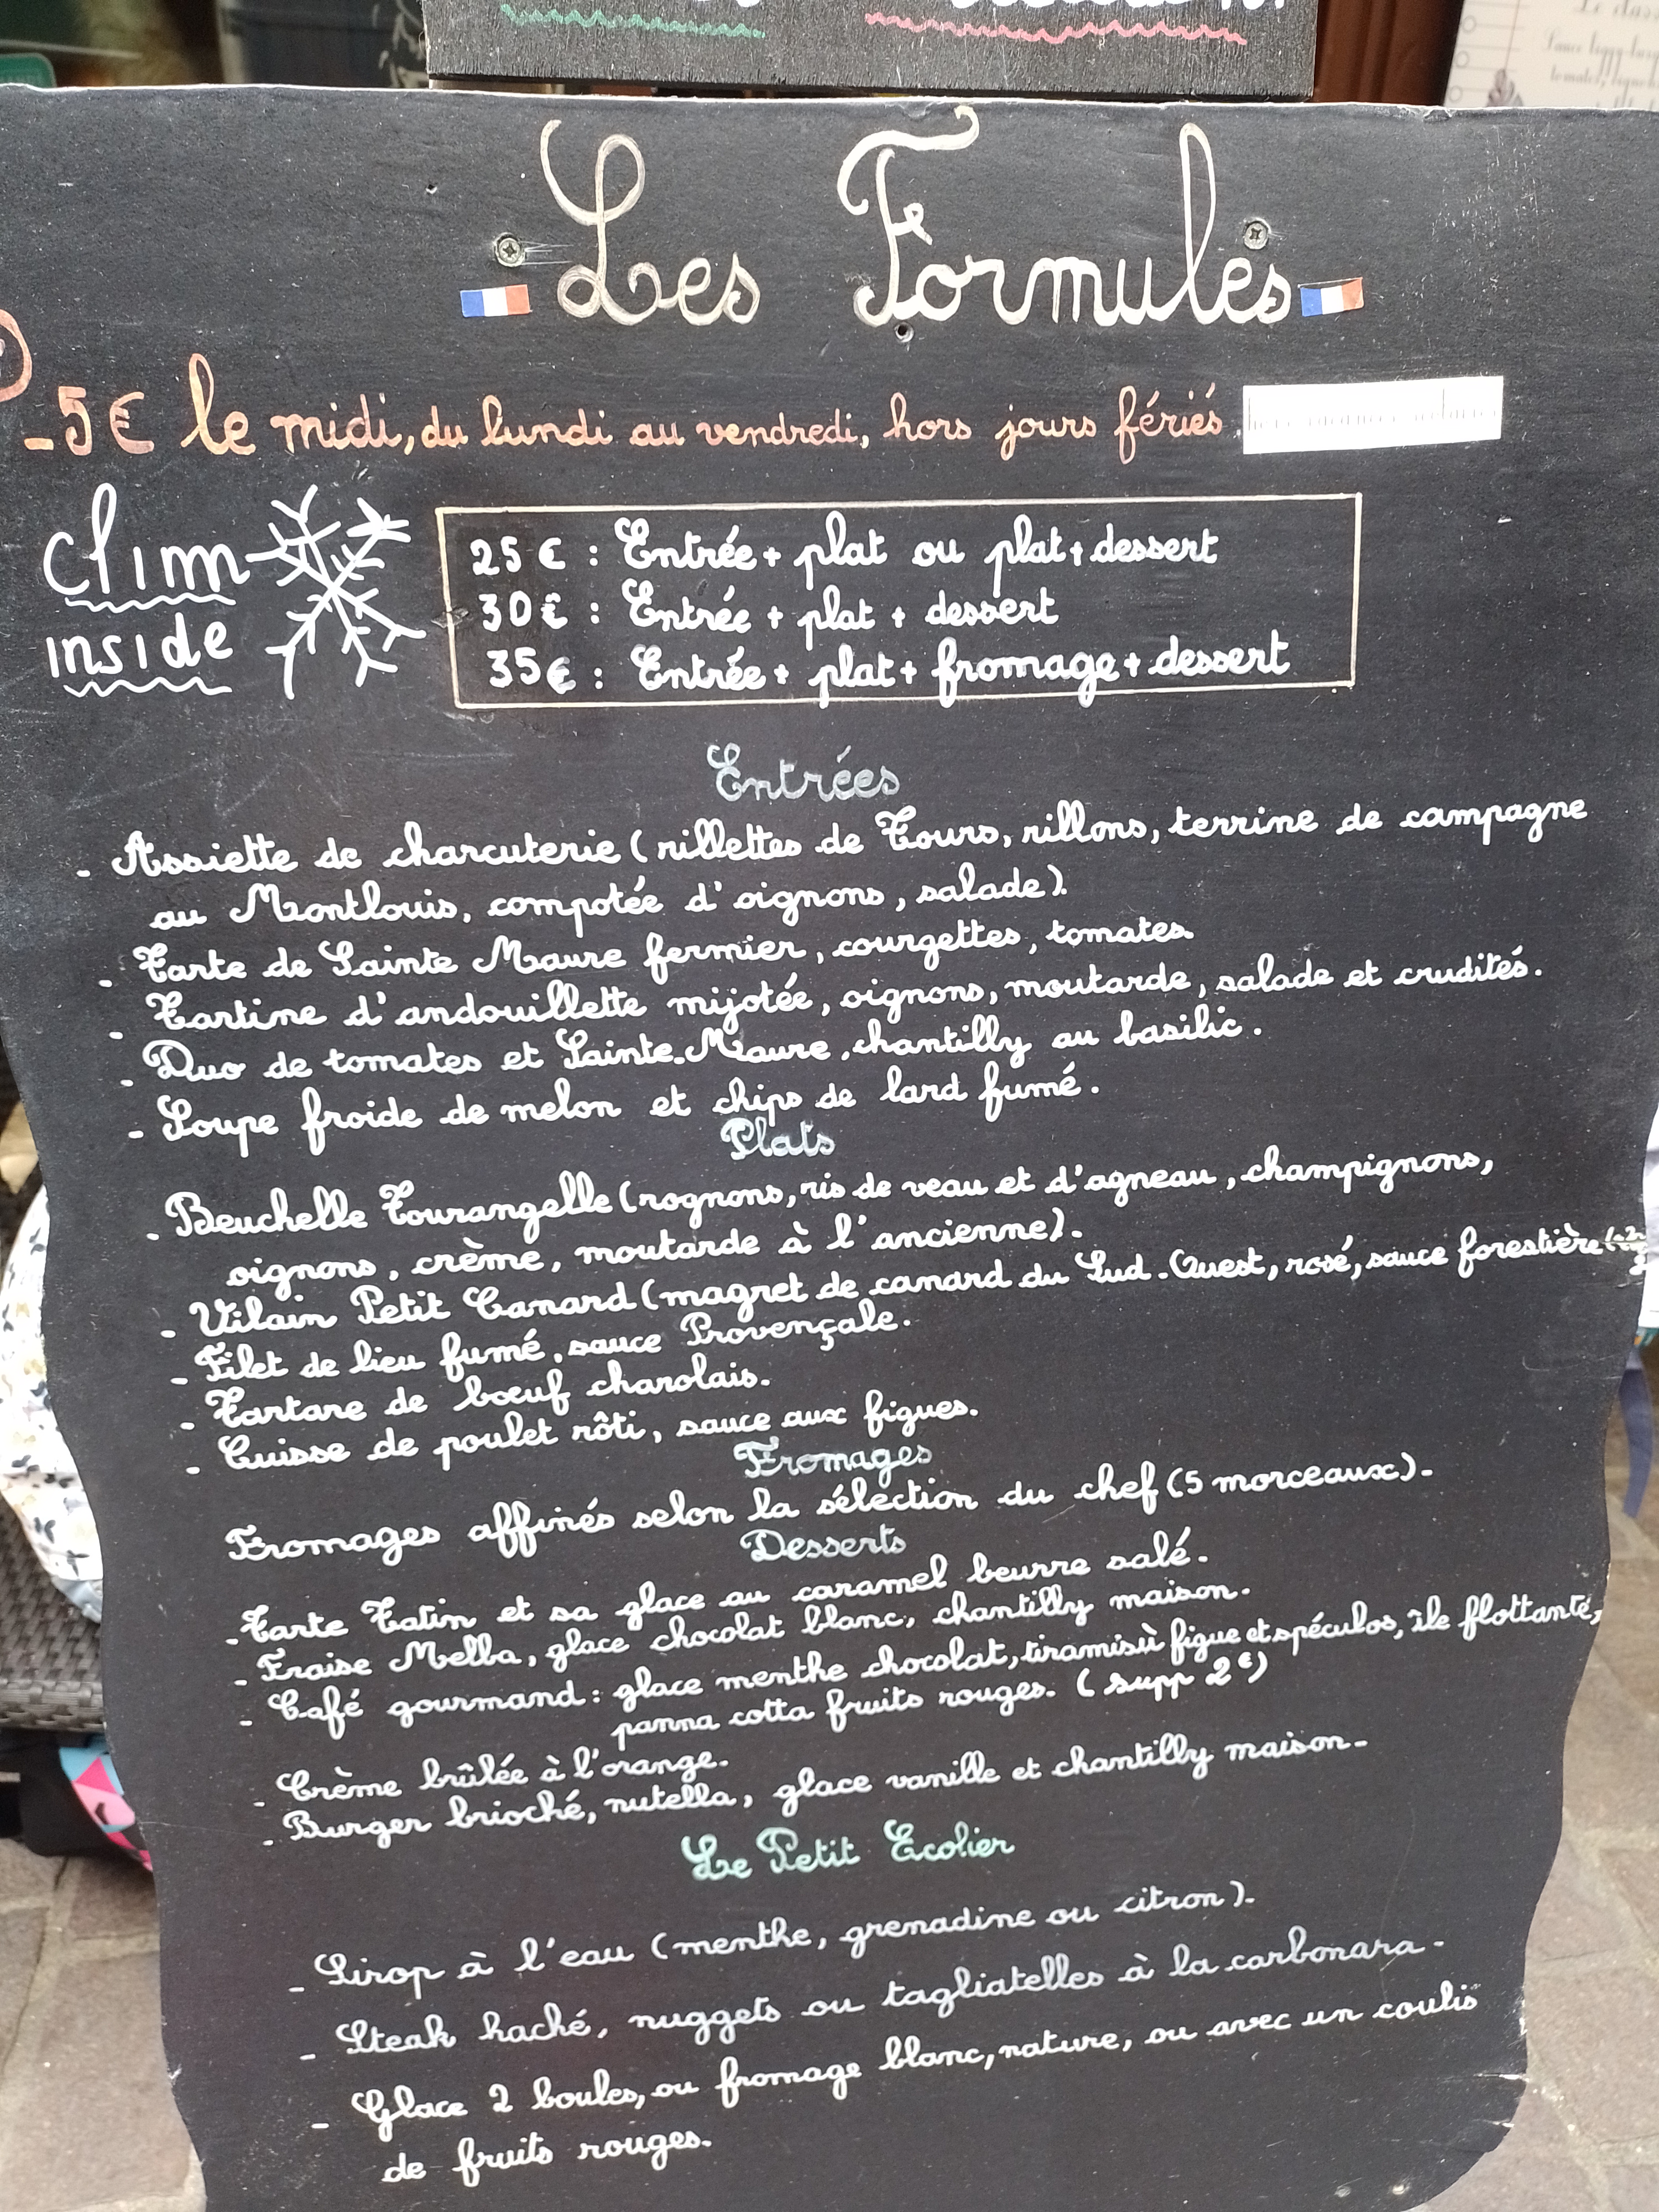 Les Formules
-5€ le midi, du lundi au vendredi, hors jours fériés
clim
inside
25€ : Entrée + plat ou plat + dessert
30€ : Entrée + plat + dessert
35€ : Entrée + plat + fromage + dessert
Entrées
- Assiette de charcuterie (rillettes de Tours, rillons, terrine de campagne
au Montlouis, compotée d'oignons, salade).
- Tarte de Sainte Maure fermier, courgettes, tomates.
- Tartine d'andouillette mijotée, oignons, moutarde, salade et crudités.
- Duo de tomates et Sainte-Maure, chantilly au basilic.
- Soupe froide de melon et chips de lard fumé.
Plats
- Beuchelle Tourangelle (rognons, ris de veau et d'agneau, champignons,
oignons, crème, moutarde à l'ancienne).
- Vilain Petit Canard (magret de canard du Sud-Ouest, rosé, sauce forestière
- Filet de lieu fumé, sauce Provençale.
- Tartare de bœuf charolais.
- Cuisse de poulet rôti, sauce aux figues.
Fromages
Fromages affinés selon la sélection du chef (5 morceaux).
Desserts
- Tarte Tatin et sa glace au caramel beurre salé.
- Fraise Melba, glace chocolat blanc, chantilly maison.
- Café gourmand : glace menthe chocolat, tiramisù figue et spéculos, île flottante,
panna cotta fruits rouges. (supp 2€)
- Crème brûlée à l'orange.
- Burger brioché, nutella, glace vanille et chantilly maison.
Le Petit Ecolier
- Sirop à l'eau (menthe, grenadine ou citron).
- Steak haché, nuggets ou tagliatelles à la carbonara.
- Glace 2 boules, ou fromage blanc, nature, ou avec un coulis
de fruits rouges.